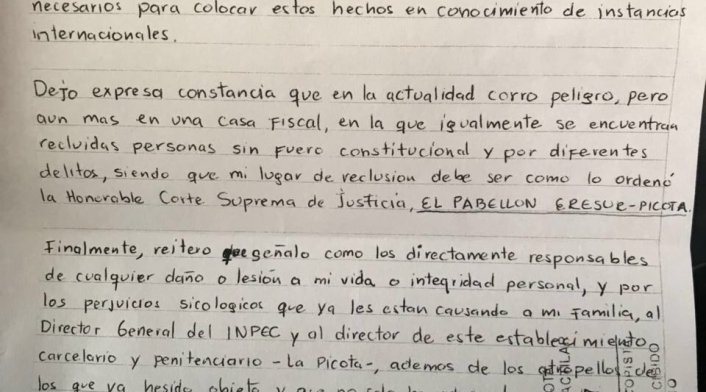 necesarios para colocar estos hechos en conocimiento de instancias
internacionales.
Dejo expresa constancia que en la actualidad corro peligro, pero
aun mas en una casa Fiscal, en la que igualmente se encuentran
recluidas personas sin Fuero constitucional y por diferentes
delitos, siendo que mi lugar de reclusion debe ser como lo ordenó
la Honorable Corte Suprema de Justicia, EL PABELLON ERESUR-PICOTA.
Finalmente, reitero que señalo como los directamente responsables
de cualquier daño o lesión a mi vida o integridad personal, y por
los perjuicios sicologicos que ya les estan causando a mi Familia, al
Director General del INPEC y al director de este establecimiento
carcelario y penitenciario - La Picota-, ademas de los atropellos de
los que ya heside objeto y